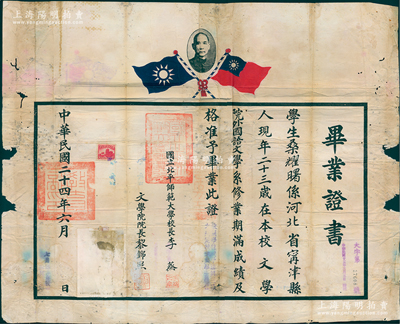 上海陽明拍賣
畢業證書
學生桑耀曙係河北省甯津縣
人現年二十三歲在本校文學
院外國語文學系修業期滿成績及
格准予畢業此證
國立北平師範大學校長李蒸
文學院院長黎錦熙
中華民國二十四年六月 日
上海陽明拍賣